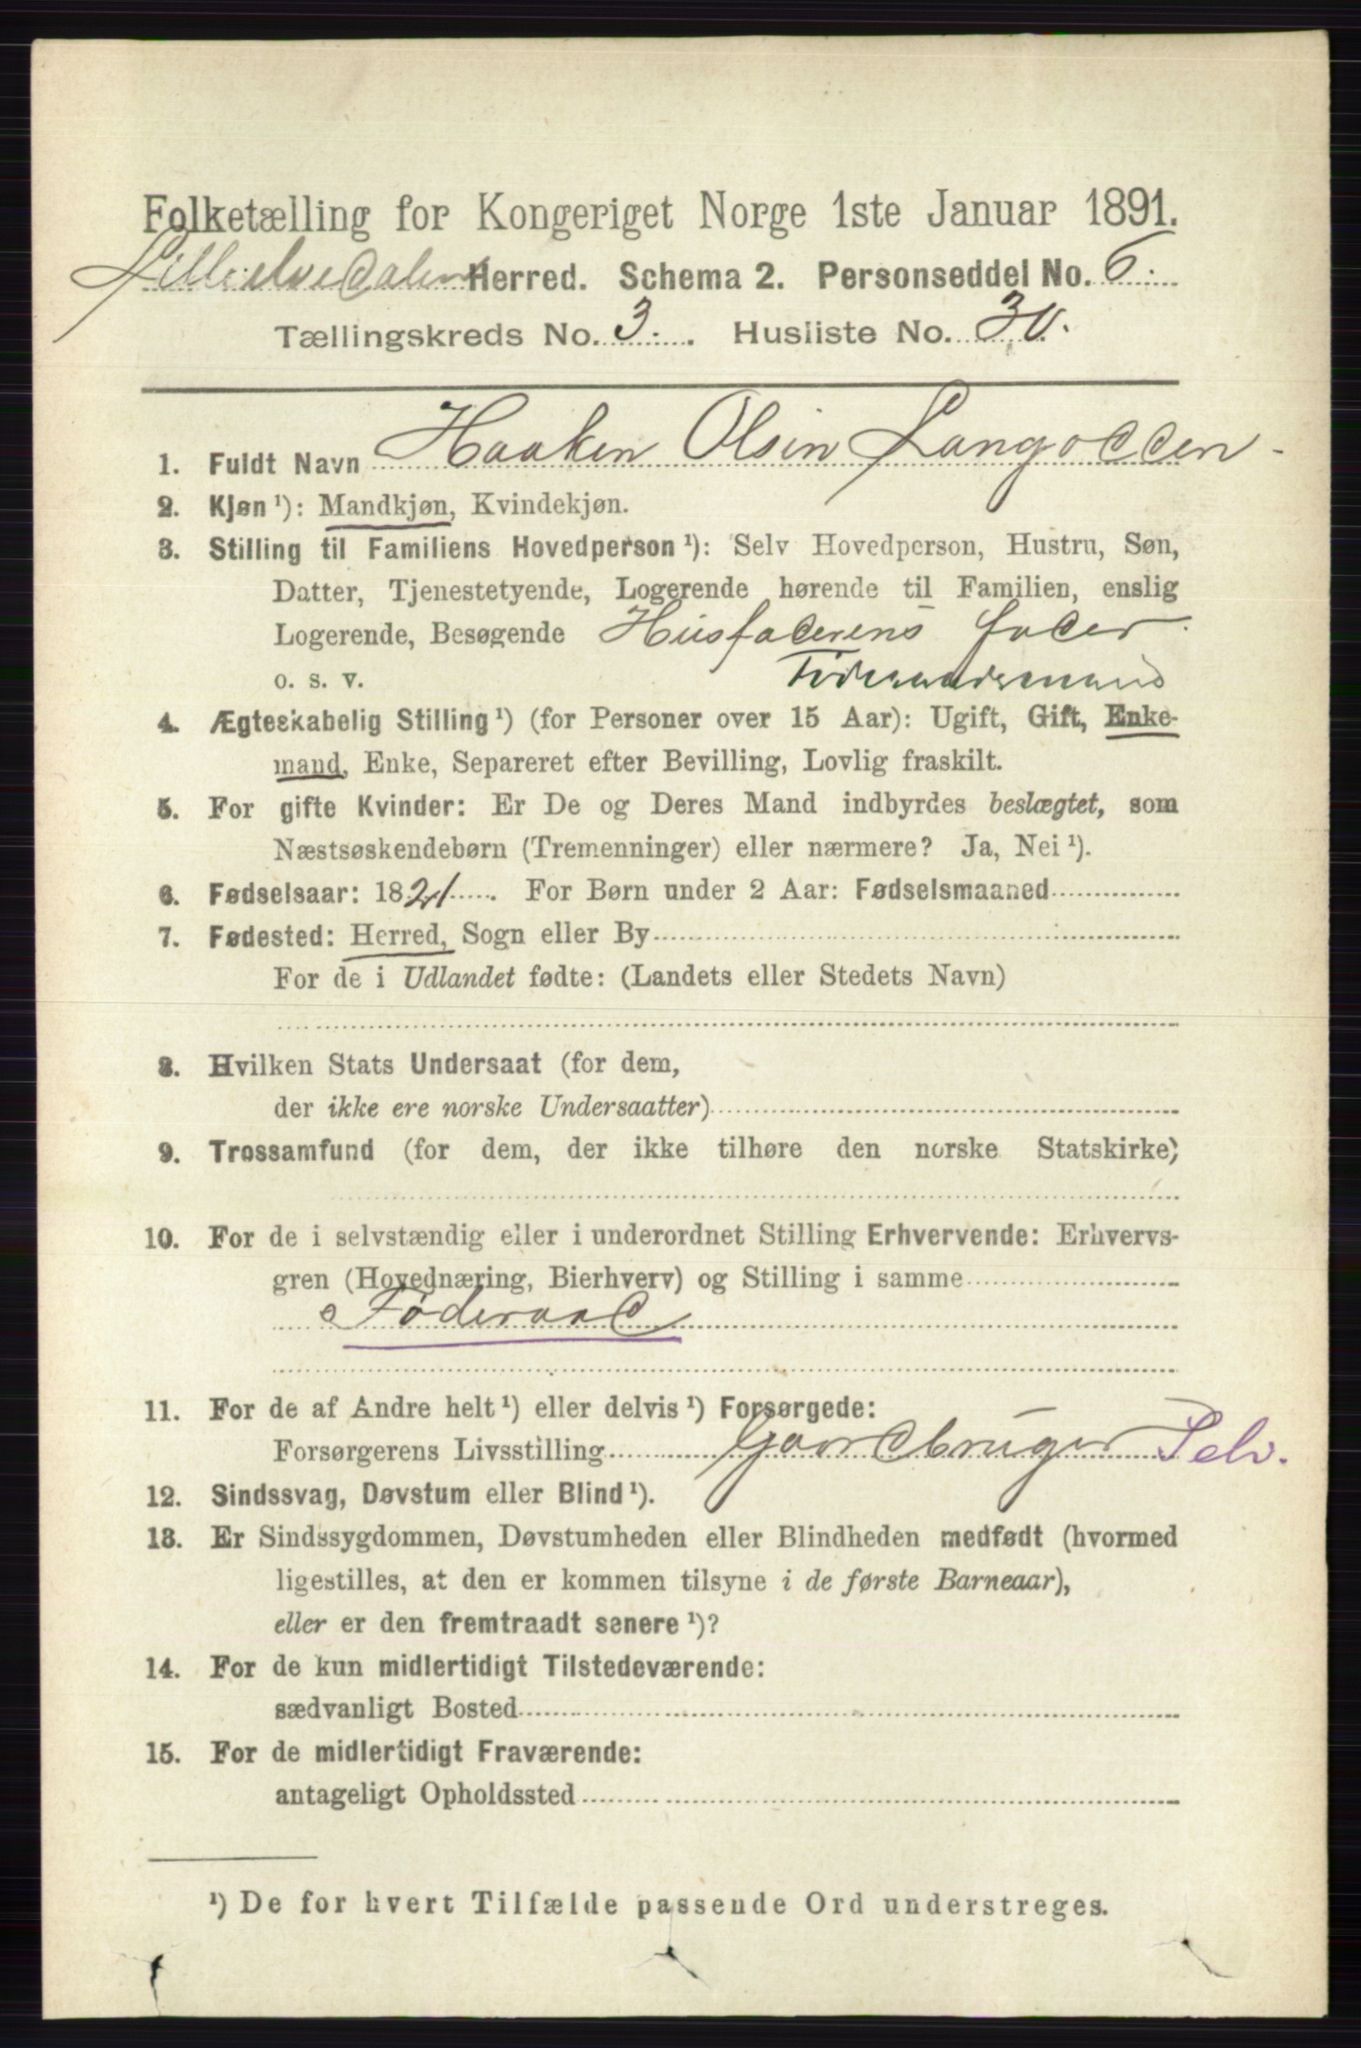 Folketælling for Kongeriget Norge 1ste Januar 1891.
Lilleelvedalen Herred. Schema 2. Personseddel No. 6.
Tællingskreds No. 3. Husliste No. 30.
1. Fuldt Navn Haaken Olsen Langodden
2. Kjøn ¹): Mandkjøn, Kvindekjøn.
3. Stilling til Familiens Hovedperson ¹): Selv Hovedperson, Hustru, Søn,
Datter, Tjenestetyende, Logerende hørende til Familien, enslig
Logerende, Besøgende Husfaderens fader.
o. s. v. Föderaadsmand
4. Ægteskabelig Stilling ¹) (for Personer over 15 Aar): Ugift, Gift, Enke-
mand, Enke, Separeret efter Bevilling, Lovlig fraskilt.
5. For gifte Kvinder: Er De og Deres Mand indbyrdes beslægtet, som
Næstsøskendebørn (Tremenninger) eller nærmere? Ja, Nei ¹).
6. Fødselsaar: 1821. For Børn under 2 Aar: Fødselsmaaned
7. Fødested: Herred, Sogn eller By
For de i Udlandet fødte: (Landets eller Stedets Navn)
8. Hvilken Stats Undersaat (for dem,
der ikke ere norske Undersaatter)
9. Trossamfund (for dem, der ikke tilhøre den norske Statskirke)
10. For de i selvstændig eller i underordnet Stilling Erhvervende: Erhvervs-
gren (Hovednæring, Bierhverv) og Stilling i samme
Føderaad
11. For de af Andre helt ¹) eller delvis ¹) Forsørgede:
Forsørgerens Livsstilling Gaardbruger Selv.
12. Sindssvag, Døvstum eller Blind ¹).
13. Er Sindssygdommen, Døvstumheden eller Blindheden medfødt (hvormed
ligestilles, at den er kommen tilsyne i de første Barneaar),
eller er den fremtraadt senere ¹)?
14. For de kun midlertidigt Tilstedeværende:
sædvanligt Bosted
15. For de midlertidigt Fraværende:
antageligt Opholdssted
¹) De for hvert Tilfælde passende Ord understreges.